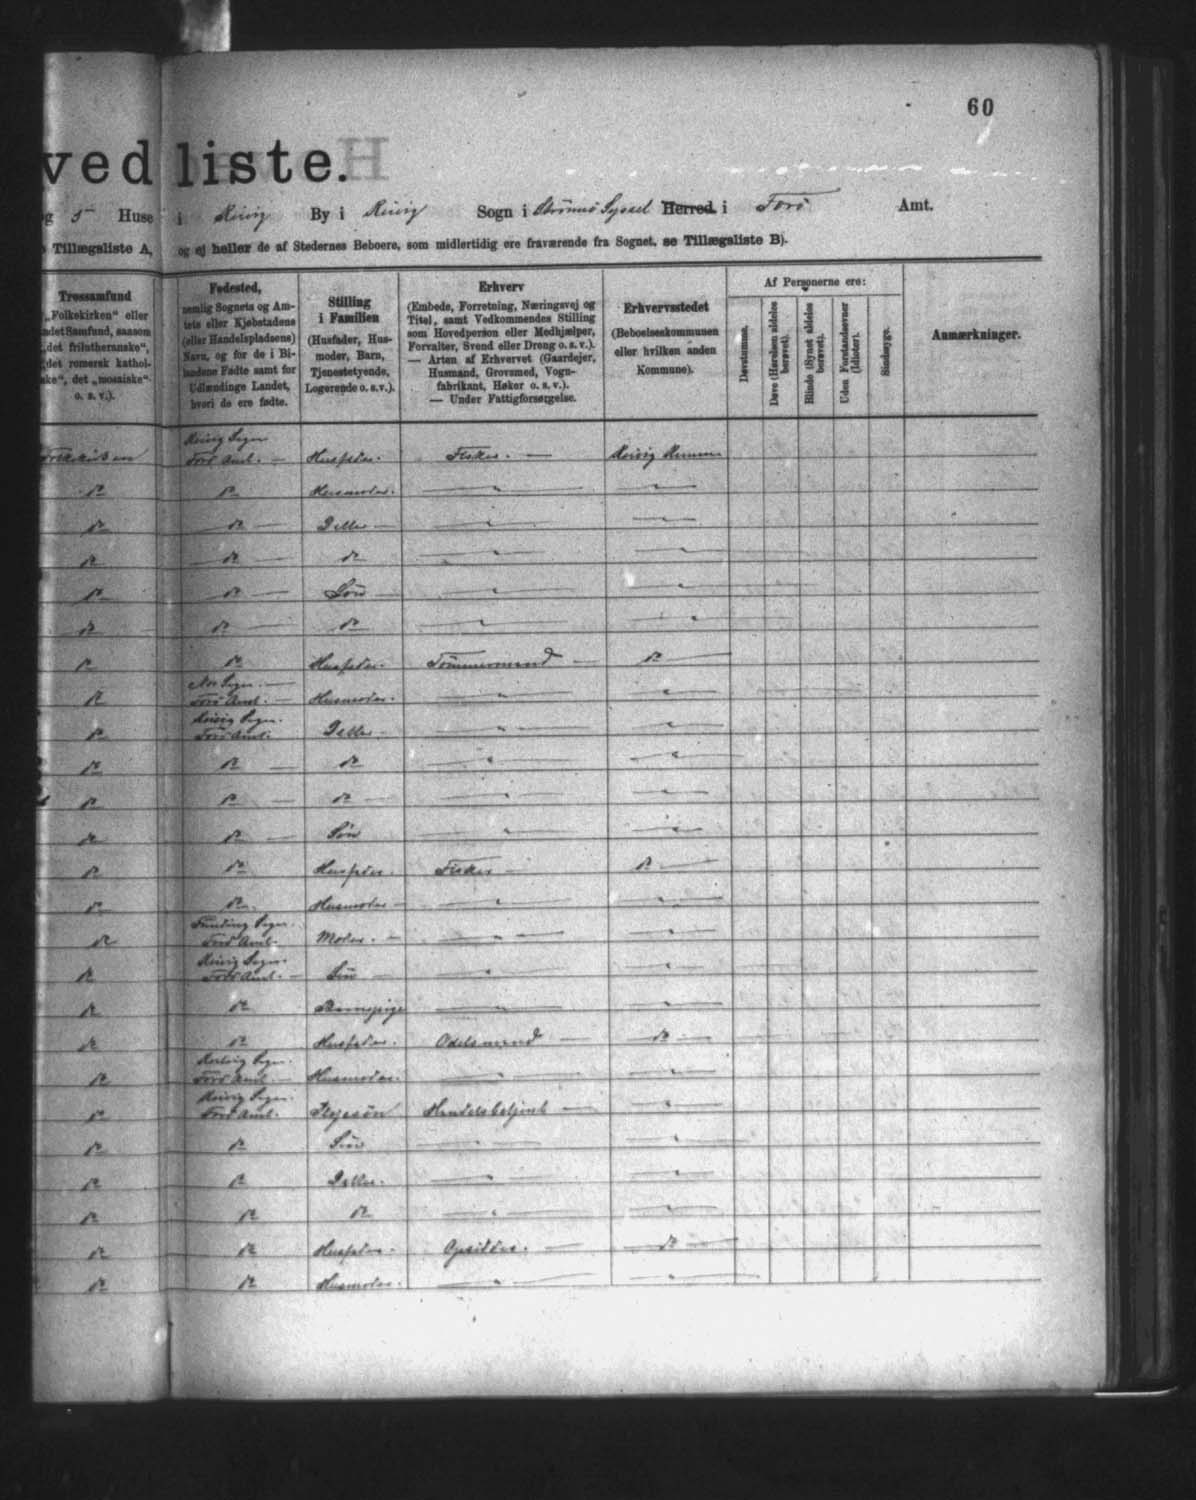 60
ved liste.
g 5 Huse i Kvivig By i Kvivig Sogn i Strömö Syssel Herred i Færö Amt.
Tillægsliste A, og ej heller de af Stedernes Beboere, som midlertidig ere fraværende fra Sognet, se Tillægsliste B).
Trossamfund
„Folkekirken“ eller
ndet Samfund, saasom
„det frilutheranske“,
„det romersk kathol-
ske“, det „mosaiske“
o. s. v.).
Fødested,
nemlig Sognets og Am-
tets eller Kjøbstadens
(eller Handelspladsens)
Navn, og for de i Bi-
landene Fødte samt for
Udlændinge Landet,
hvori de ere fødte.
Stilling
i Familien
(Husfader, Hus-
moder, Barn,
Tjenestetyende,
Logerende o. s. v.).
Erhverv
(Embede, Forretning, Næringsvej og
Titel, samt Vedkommendes Stilling
som Hovedperson eller Medhjælper,
Forvalter, Svend eller Dreng o. s. v.).
— Arten af Erhvervet (Gaardejer,
Husmand, Grovsmed, Vogn-
fabrikant, Høker o. s. v.).
— Under Fattigforsørgelse.
Erhvervsstedet
(Beboelseskommunen
eller hvilken anden
Kommune).
Af Personerne ere:
Døvstumme.
Døve (Hørelsen aldeles
berøvet).
Blinde (Synet aldeles
berøvet).
Uden Forstandsevner
(Idioter).
Sindssyge.
Anmærkninger.
Kvivig Sogn
Folkekirken Færö Amt. — Husfader. Fisker. — Kvivig Kommune
do do Husmoder. — " — — " —
do do — Datter — — " — — " —
do do — do — " — — " —
do do — Sön — — " — — " —
do do — do — " — — " —
do do Husfader. Tömmermand — do —
Sogn. —
do Færö Amt. — Husmoder. — " — — " —
Kvivig Sogn.
do Færö Amt. Datter — — " — — " —
do do — do — " — — " —
do do — do — — " — — " —
do do — Sön — " — — " —
do do Husfader. Fisker — do —
do do. Husmoder — — " — — " —
Funding Sogn.
do Færö Amt. Moder. — — " — — " —
Kvivig Sogn.
do Færö Amt. — Sön — — " — — " —
do do — " — — " —
do do Husfader. Odelsmand — do —
Sogn.
do Færö Amt. — Husmoder. — " — — " —
Kvivig Sogn.
do Færö Amt. Plejesön Handelsbetjent — — " —
do do Sön — " — — " —
do do Datter. — " — — " —
do do do — " — — " —
do do Husfader — Opsidder. — do —
do do Husmoder. — " — — " —